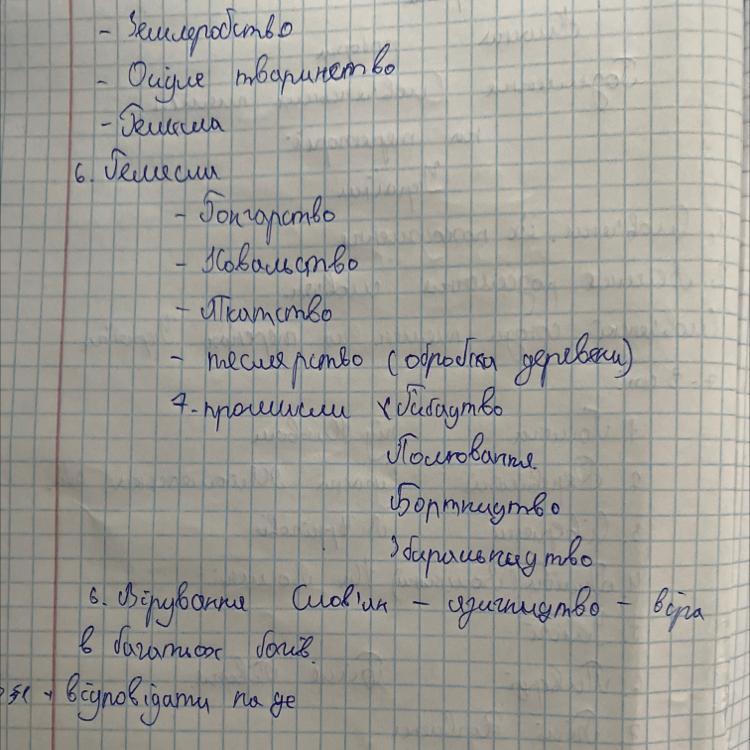 - Землеробство
- Осідле тваринство
- Ремесла
6. Ремесла
- Гончарство
- Ковальство
- Ткатство
- теслярство (обробка деревени)
7. промисли Рибацтво
Полювання
Бортництво
Збиральництво
6. Вірування Слов'ян - язичництво - віра
в багатьох богів.
відповідати на де